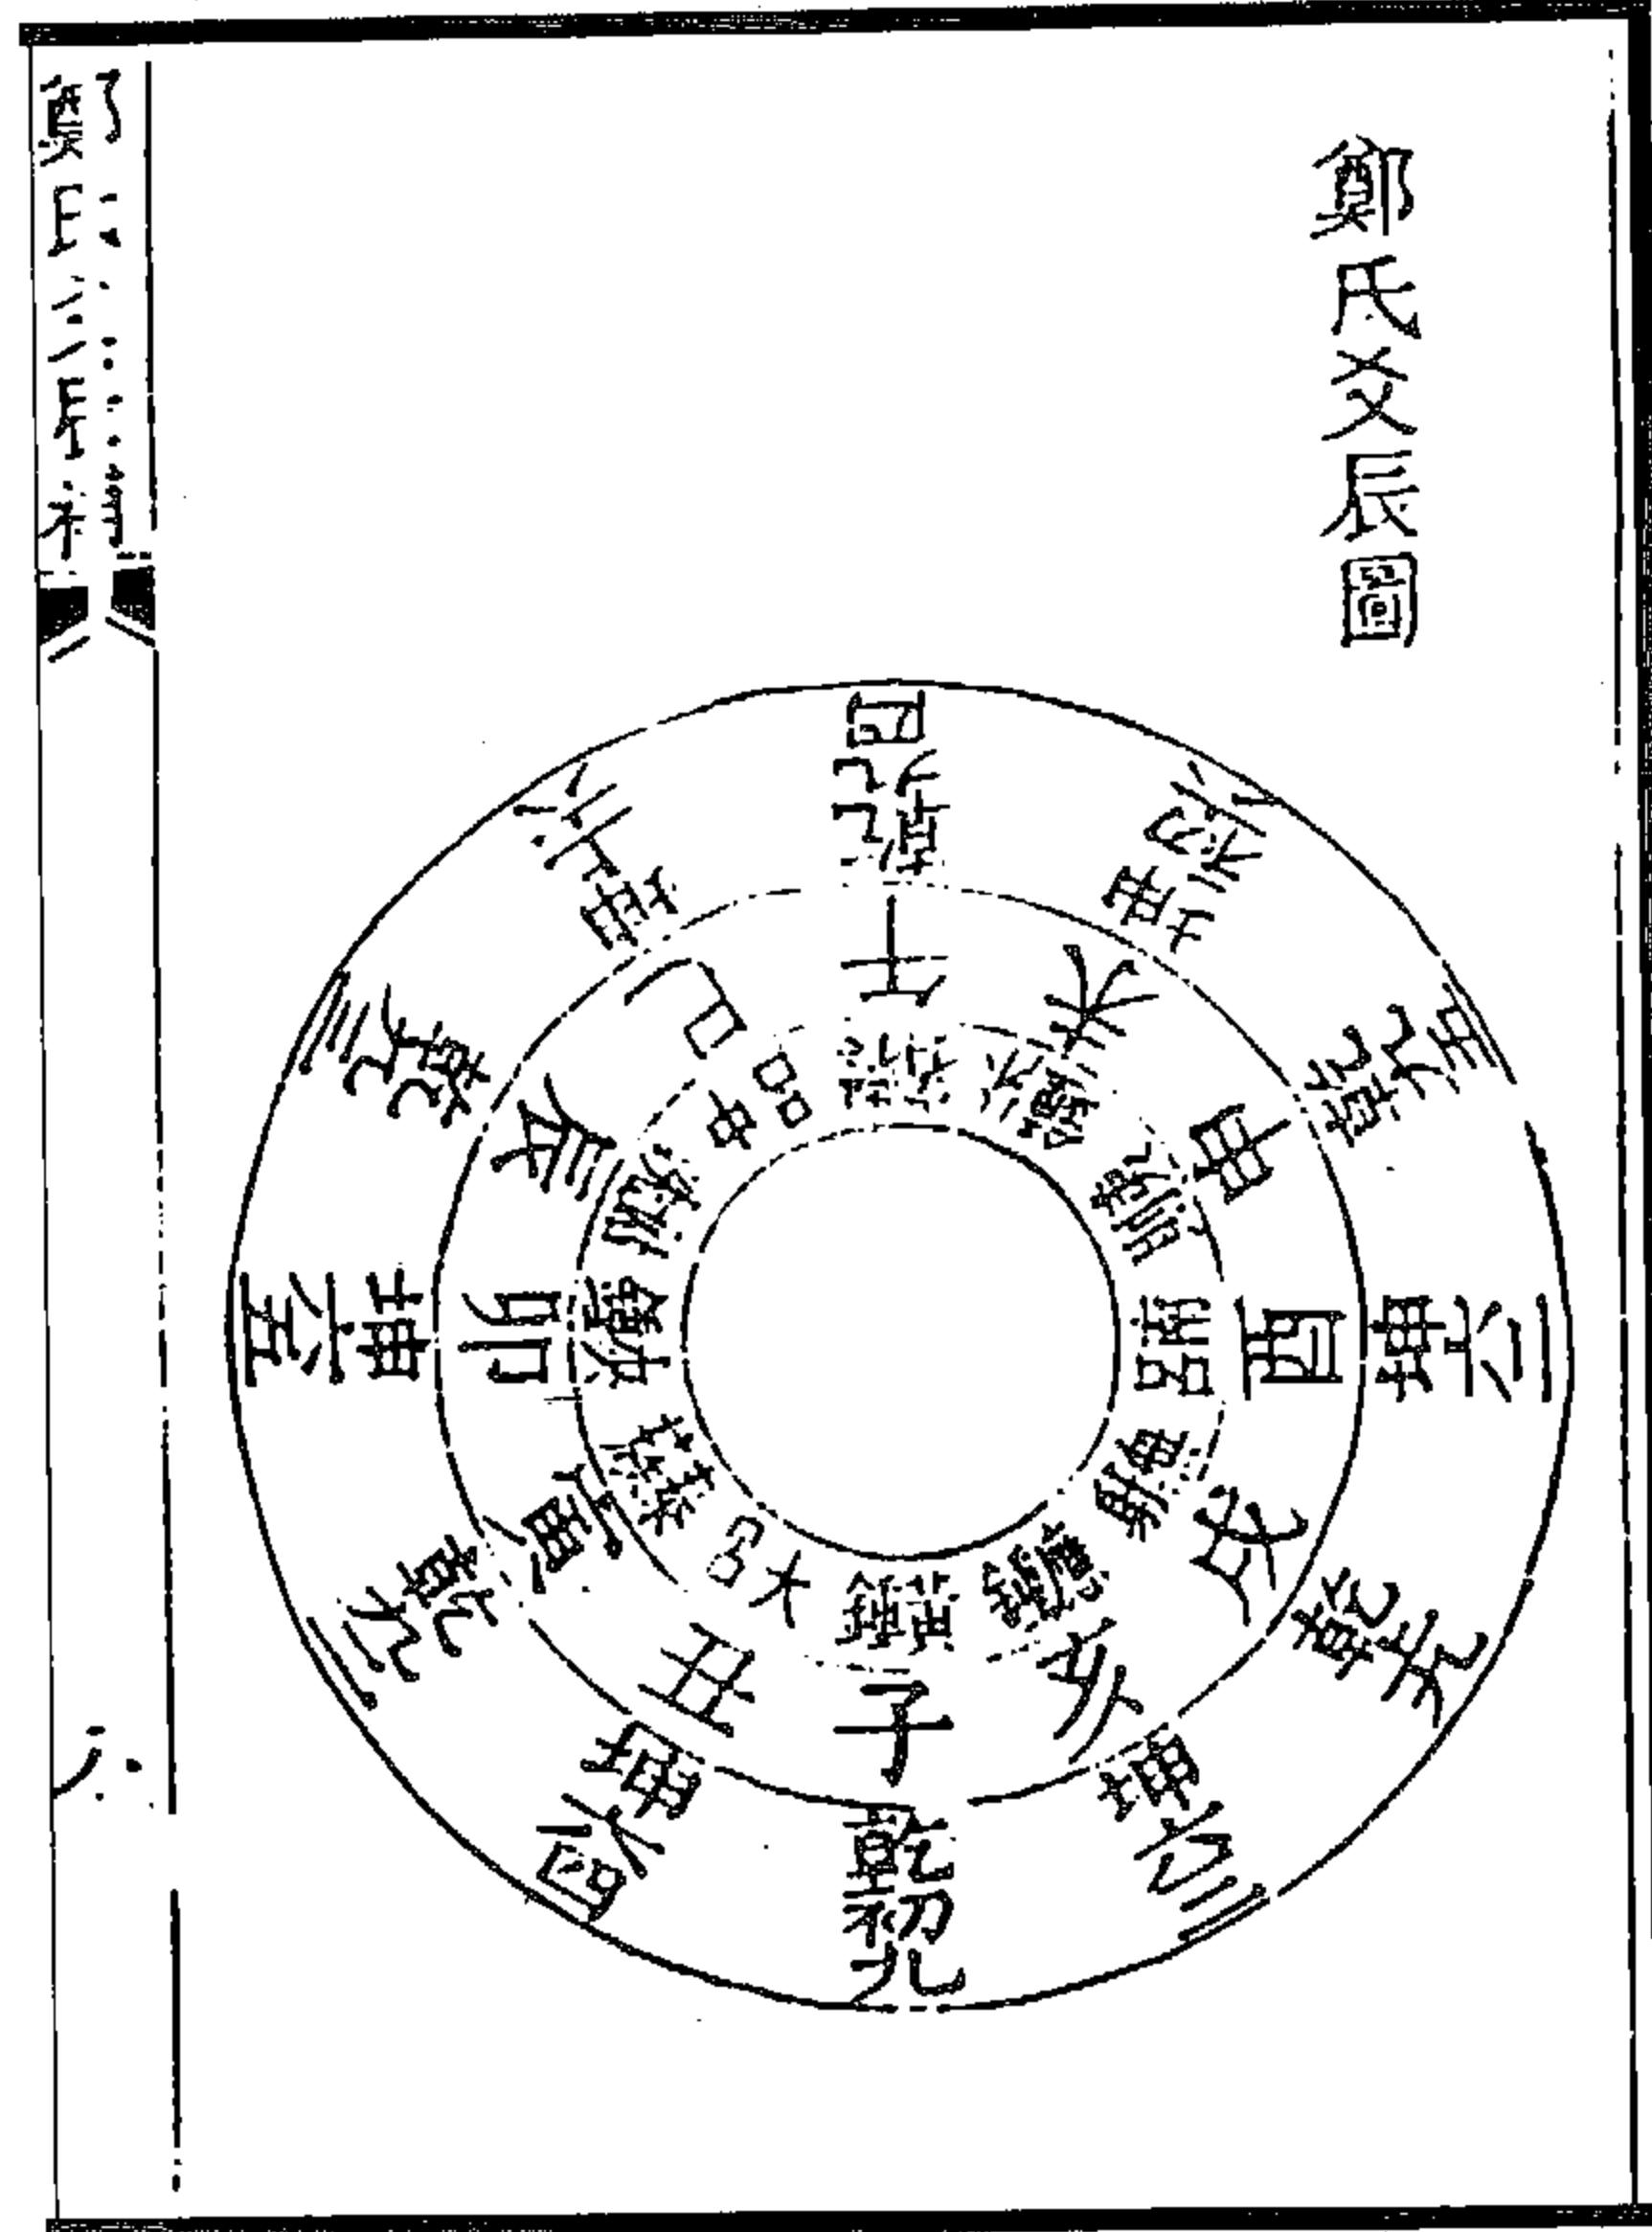 鄭氏爻辰圖
乾初九
子
黃鐘
坤六四
丑
大呂
乾九二
寅
坤六五
卯
夾鐘
乾九三
辰
姑洗
坤上六
巳
中呂
乾九四
午
蕤賓
坤初六
未
林鐘
乾九五
申
夷則
坤六二
酉
南呂
乾上九
戌
無射
坤六三
亥
應鐘